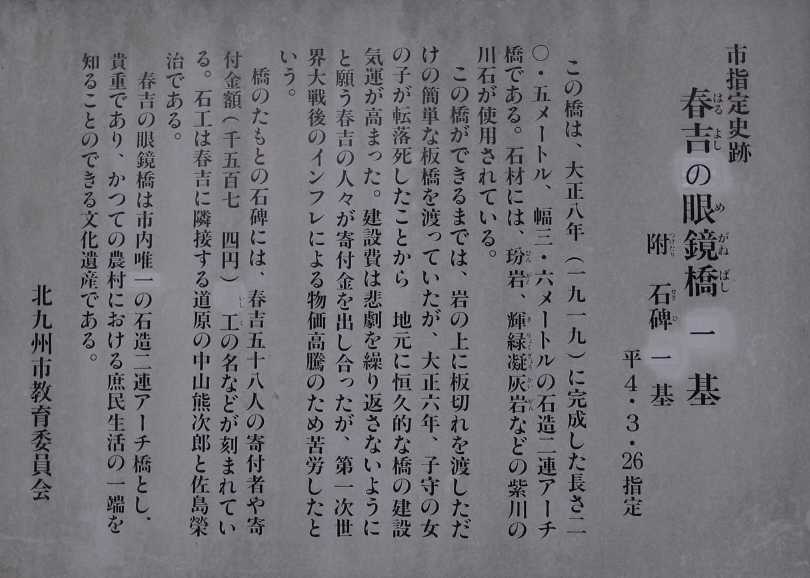 市指定史跡
春吉の眼鏡橋 一基
はる よし め がね ばし
附 石碑 一基
つけたり せき ひ
平4・3・26指定
この橋は、大正八年（一九一九）に完成した長さ二
〇・五メートル、幅三・六メートルの石造二連アーチ
橋である。石材には、玢岩、輝緑凝灰岩などの紫川の
川石が使用されている。
この橋ができるまでは、岩の上に板切れを渡しただ
けの簡単な板橋を渡っていたが、大正六年、子守の女
の子が転落死したことから 地元に恒久的な橋の建設
気運が高まった。建設費は悲劇を繰り返さないように
と願う春吉の人々が寄付金を出し合ったが、第一次世
界大戦後のインフレによる物価高騰のため苦労したと
いう。
橋のたもとの石碑には、春吉五十八人の寄付者や寄
付金額（千五百七 四円） 工の名などが刻まれてい
る。石工は春吉に隣接する道原の中山熊次郎と佐島榮
治である。
春吉の眼鏡橋は市内唯一の石造二連アーチ橋とし、
貴重であり、かつての農村における庶民生活の一端を
知ることのできる文化遺産である。
北九州市教育委員会